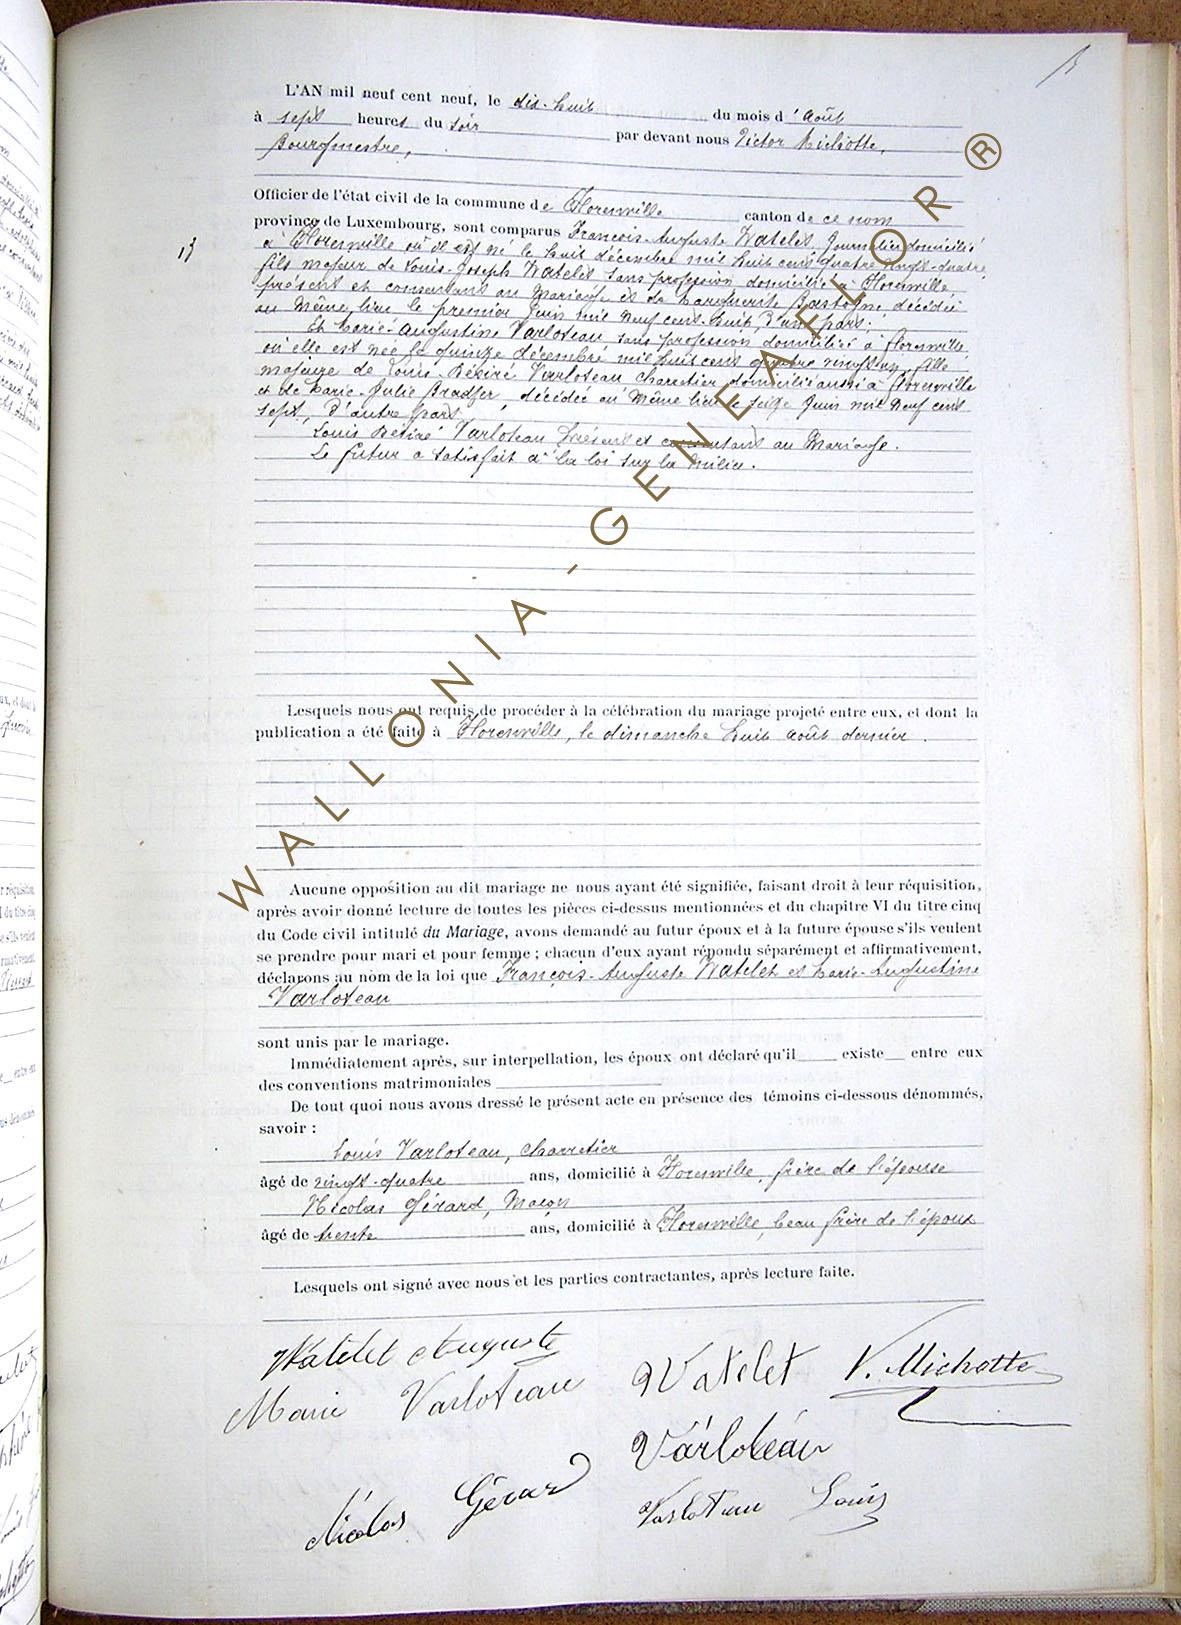 L'AN mil neuf cent neuf, le dix-huit du mois d'Août
à sept heures du soir par devant nous Victor Michotte,
Bourgmestre,
Officier de l'état civil de la commune de Florenville canton de ce nom
province de Luxembourg, sont comparus François-Auguste Watelet Journalier domicilié
à Florenville où il est né le huit décembre mil huit cent quatre vingt-quatre
fils majeur de Louis-Joseph Watelet sans profession domicilié à Florenville
présent et consentant au Mariage et de Marguerite Bastogne, décédée
au Même lieu le premier Juin mil neuf cent-huit, d'une part;
13
Et Marie-Augustine Varloteau, sans profession domiciliée à Florenville
où elle est née le quinze décembre mil huit cent quatre vingt un, fille
majeure de Louis-Désiré Varloteau charretier domicilié aussi à Florenville
et de Marie-Julie Bradfer, décédée au Même lieu le seize Juin mil neuf cent
sept, d'autre part.
Louis Désiré Varloteau présent et consentant au Mariage.
Le futur a satisfait à la loi sur la Milice.
Lesquels nous ont requis de procéder à la célébration du mariage projeté entre eux, et dont la
publication a été faite à Florenville, le dimanche huit Août dernier.
Aucune opposition au dit mariage ne nous ayant été signifiée, faisant droit à leur réquisition,
après avoir donné lecture de toutes les pièces ci-dessus mentionnées et du chapitre VI du titre cinq
du Code civil intitulé du Mariage, avons demandé au futur époux et à la future épouse s'ils veulent
se prendre pour mari et pour femme ; chacun d'eux ayant répondu séparément et affirmativement,
déclarons au nom de la loi que François-Auguste Watelet et Marie-Augustine
Varloteau
sont unis par le mariage.
Immédiatement après, sur interpellation, les époux ont déclaré qu'il existe entre eux
des conventions matrimoniales
De tout quoi nous avons dressé le présent acte en présence des témoins ci-dessous dénommés,
savoir :
Louis Varloteau, charretier
âgé de vingt-quatre ans, domicilié à Florenville, frère de l'épouse
Nicolas Gérard, Maçon
âgé de trente ans, domicilié à Florenville, beau frère de l'époux
Lesquels ont signé avec nous et les parties contractantes, après lecture faite.
Watelet Auguste
Watelet V. Michotte
Marie Varloteau
Varloteau
Nicolas Gérard
Varloteau Louis
WALLONIA-GENEAFLOR®